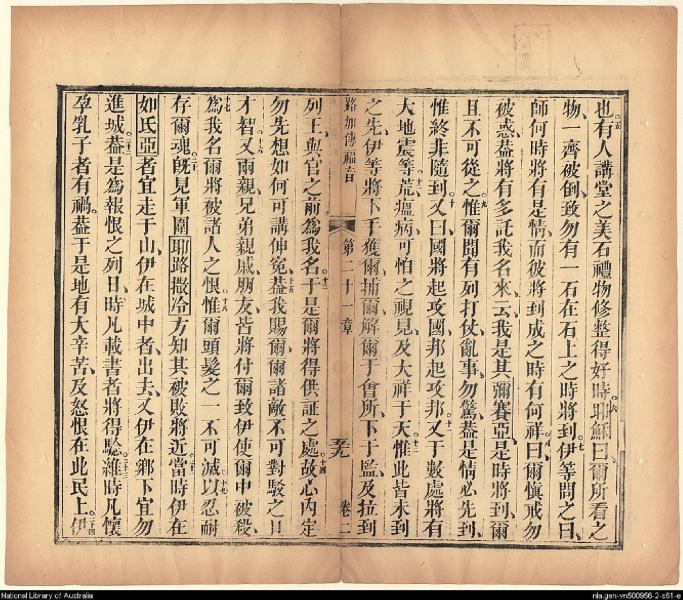 也有人講堂之美石禮物修整得好時耶穌曰爾所看之
物一齊被倒致勿有一石在石上之時將到伊等問之曰
師何時將有是情而彼將到成之時有何祥曰爾慎戒勿
被惑葢將有多託我名來云我是其彌賽亞是時將到爾
且不可從之惟爾聞有列打仗亂事勿驚葢是情必先到
惟終非隨到又曰國將起攻國邦起攻邦又于數處將有
大地震等荒瘟病可怕之視見及大祥于天惟此皆未到
之先伊等將下手獲爾捕爾解爾于會所下于監及拉到
路加傳福音 第二十一章 卷二
列王與官之前為我名于是爾將得供証之處故心內定
勿先想如何可講伸寃葢我賜爾爾諸敵不可對駁之口
才智又爾親兄弟親戚朋友皆將付爾致伊使爾中被殺
為我名爾將被諸人之恨惟爾頭髮之一不可滅以忍耐
存爾魂旣見軍圍耶路撒冷方知其被敗將近當時伊在
如氐亞者宜走于山伊在城中者出去又伊在鄉下宜勿
進城葢是為報恨之列日時凡載書者將得驗維時凡懷
孕乳子者有禍葢于是地有大辛苦及怒恨在此民上伊
National Library of Australia
nla.gen-vn500956-2-s61-e